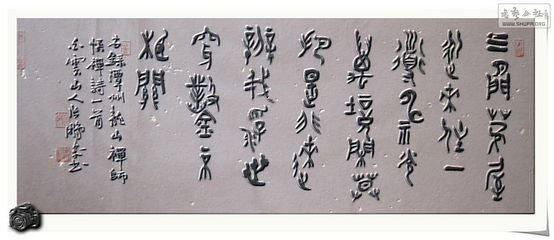 三間茅屋
從來住一
道神光
萬境閑莫
把是非來
辨我浮生
穿鑿不
相關
右錄潭州龍山禪師
悟禪詩一首
白雲山人